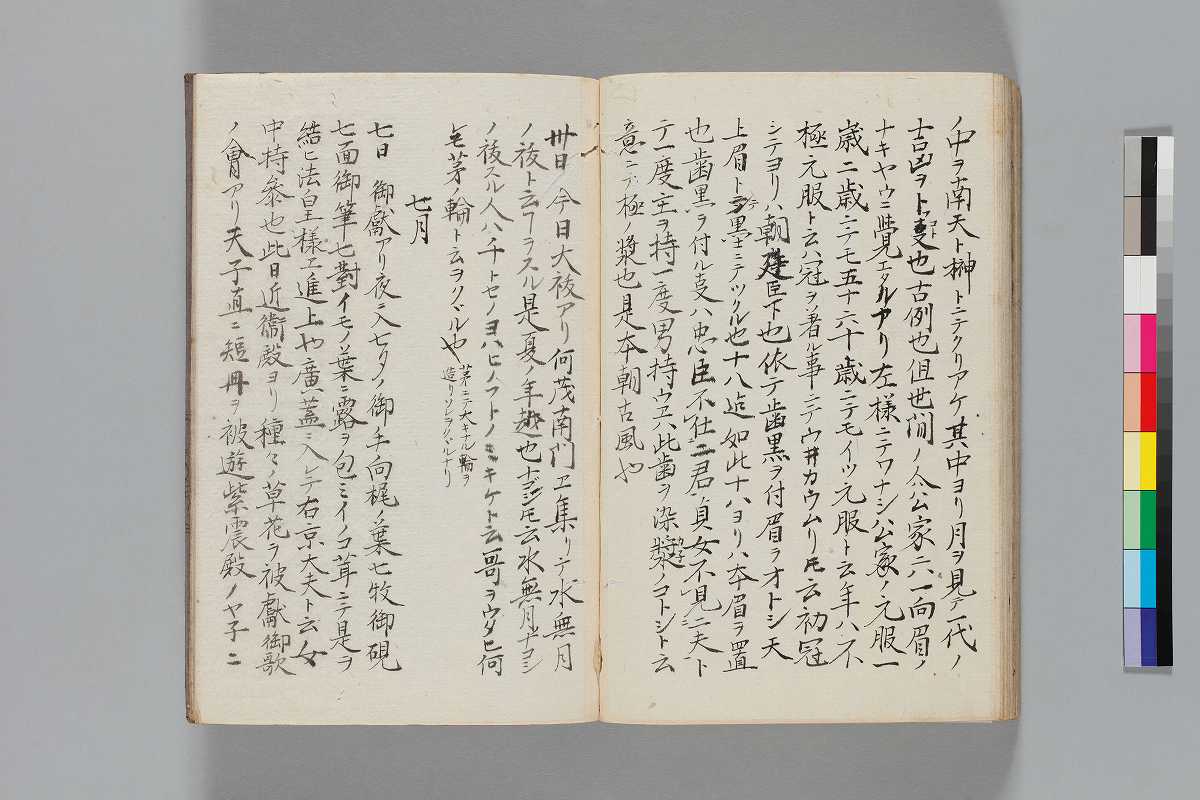 ノ中ヲ南天ト榊トニテクリアケ其中ヨリ月ヲ見テ一代ノ
吉凶ヲト叓也古例也但世間ノ人公家ニハ一向眉ノ
ナキヤウニ覺エタルアリ左様ニテワナシ公家ノ元服一
歳二歳ニテモ五十六十歳ニテモイツ元服ト云年ハ不
極元服ト云ハ冠ヲソ着ル事ニテウ井カウムリ𪜈云初冠
シテヨリハ朝廷臣下也依テ齒黒ヲ付眉ヲオトシ天
上眉トテ墨ニテツクル也十八迠如此十八ヨリハ本眉ヲ置
也齒黒ヲ付ル叓ハ忠臣不仕二君貞女不見二夫ト
テ一度主ヲ持一度男持ウヱハ此齒ヲ染漿ノコトシト云
意ニテ極ノ漿也是本朝古風也
卅日 今日大祓アリ何茂南門ヱ集リテ水無月
ノ祓ト云ヿヲスル是夏ノ年越也ナゴシ𪜈云水無月ナコシ
ノ祓スル人ハ千トセノヨハヒノフトノミキケト云哥ヲウタヒ何
モ茅ノ輪ト云ヲクヾル也 茅ニテ大キナル輪ヲ造リソレヲクヾルナリ
七月
七日 御獻アリ夜ニ入七夕ノ御手向梶ノ葉七牧御硯
七面御筆七對イモノ葉ニ露ヲ包ミイノコ茸ニテ是ヲ
結ヒ法皇様ヱ進上也廣蓋ニ入レテ右京大夫ト云女
中持参也此日近衞殿ヨリ種々ノ草花ヲ被獻御歌
ノ會アリ天子直ニ短冊ヲ被遊紫震殿ノヤ子ニ